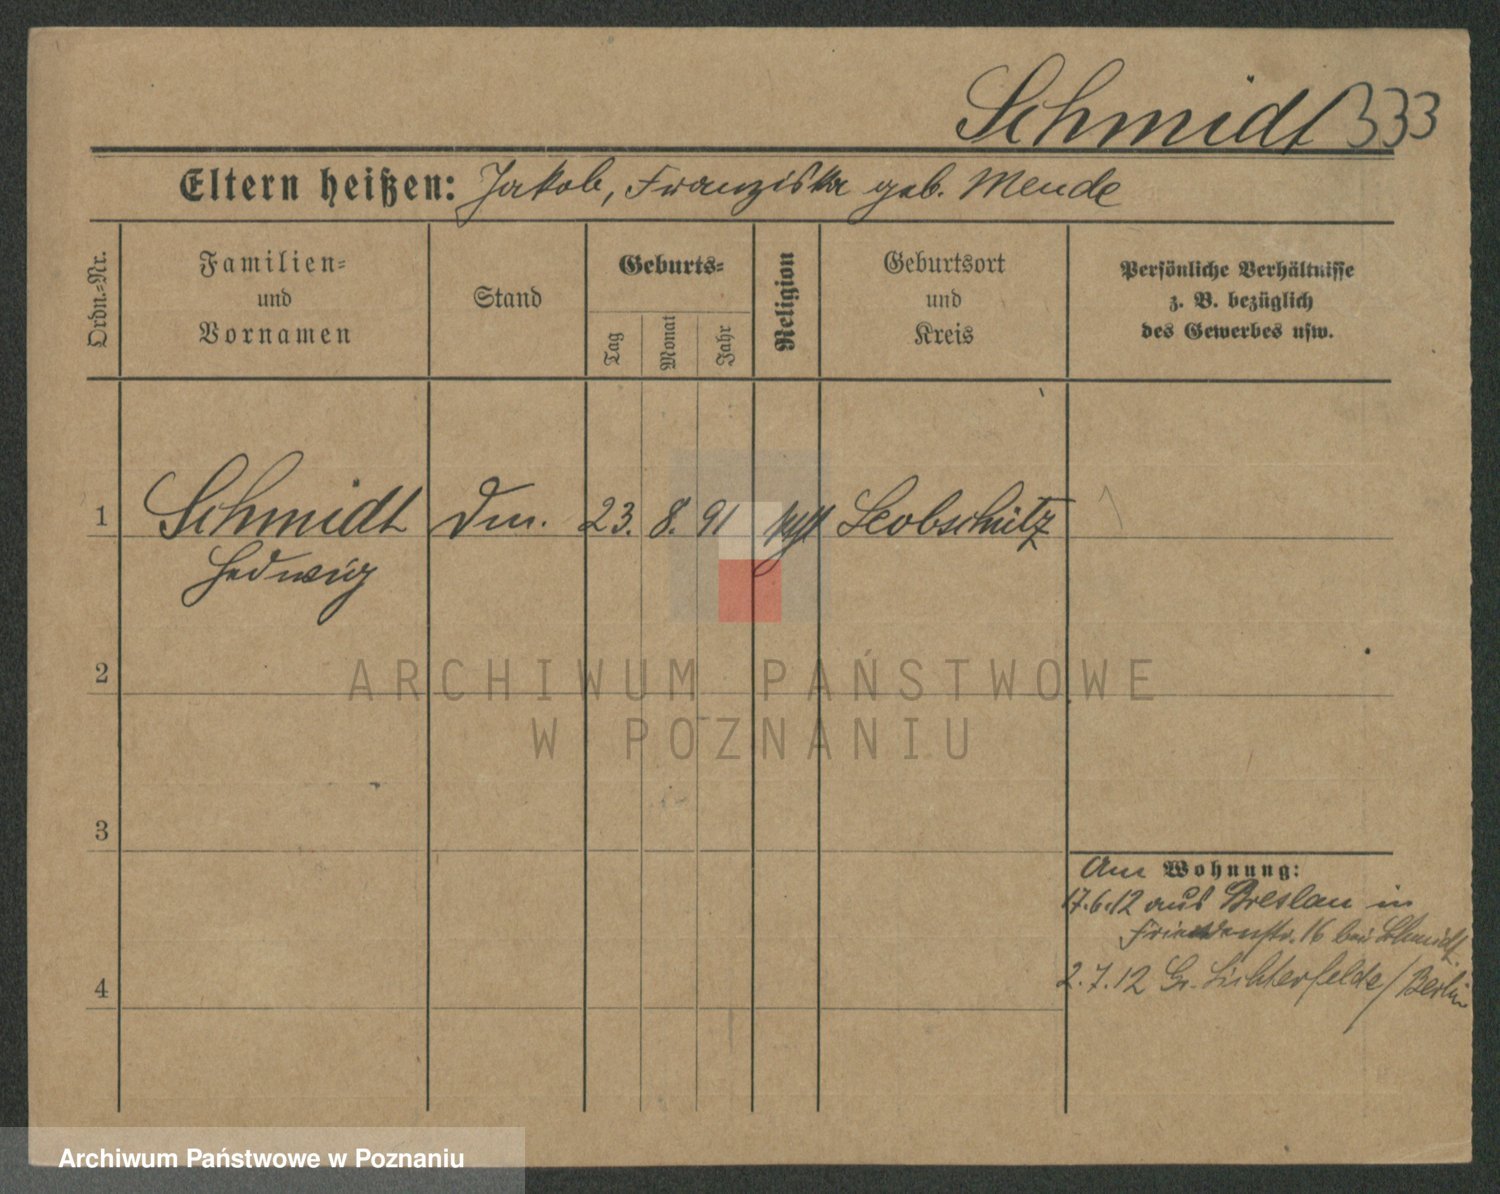 Schmidt 333
Eltern heißen: Jakob, Franziska geb. Mende
Ordn.-Nr.
Familien-
und
Vornamen
Stand
Geburts-
Tag
Monat
Jahr
Religion
Geburtsort
und
Kreis
Persönliche Verhältnisse
z. B. bezüglich
des Gewerbes usw.
1 Schmidt 23. 8. 91 Leobschütz
Hedwig
2
ARCHIWUM PAŃSTWOWE
W POZNANIU
3
Am Wohnung:
17.6.12 aus Breslau in
Friedenstr. 16 bei Schmidt
4
2.7.12 Gr. Lichterfelde/Berlin
Archiwum Państwowe w Poznaniu